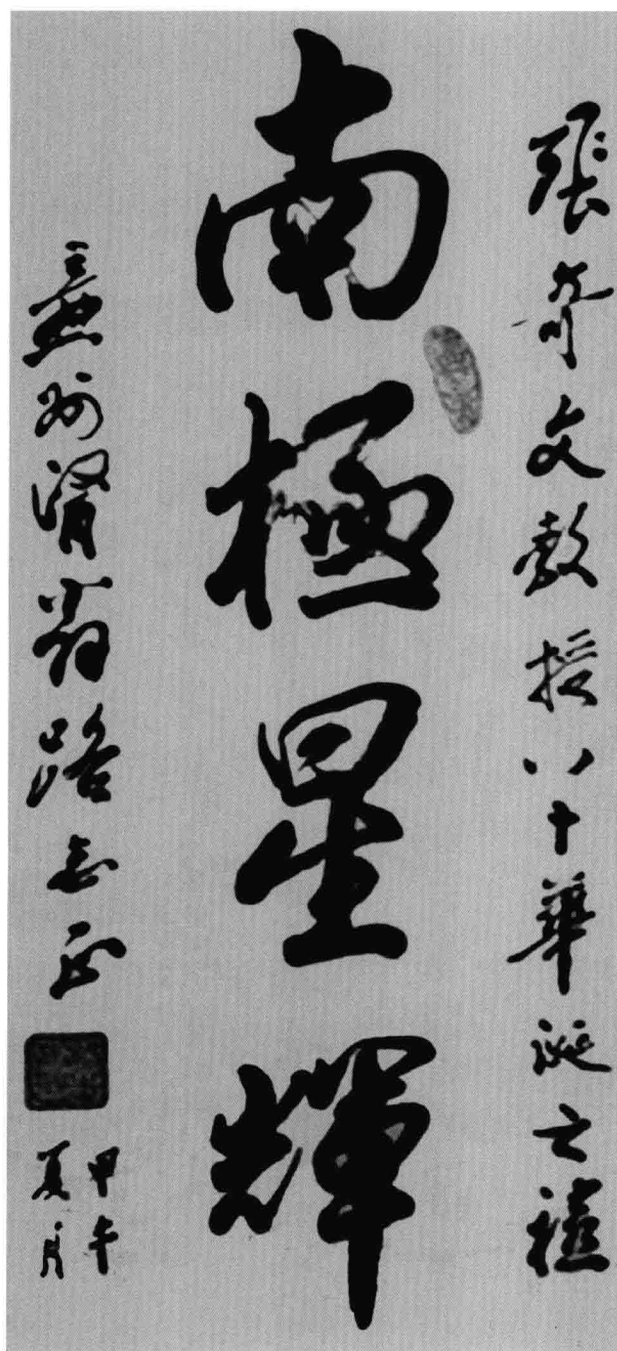 張奇文教授八十華誕之禧
南極星輝
燕州賢翁路志正
甲午
夏月